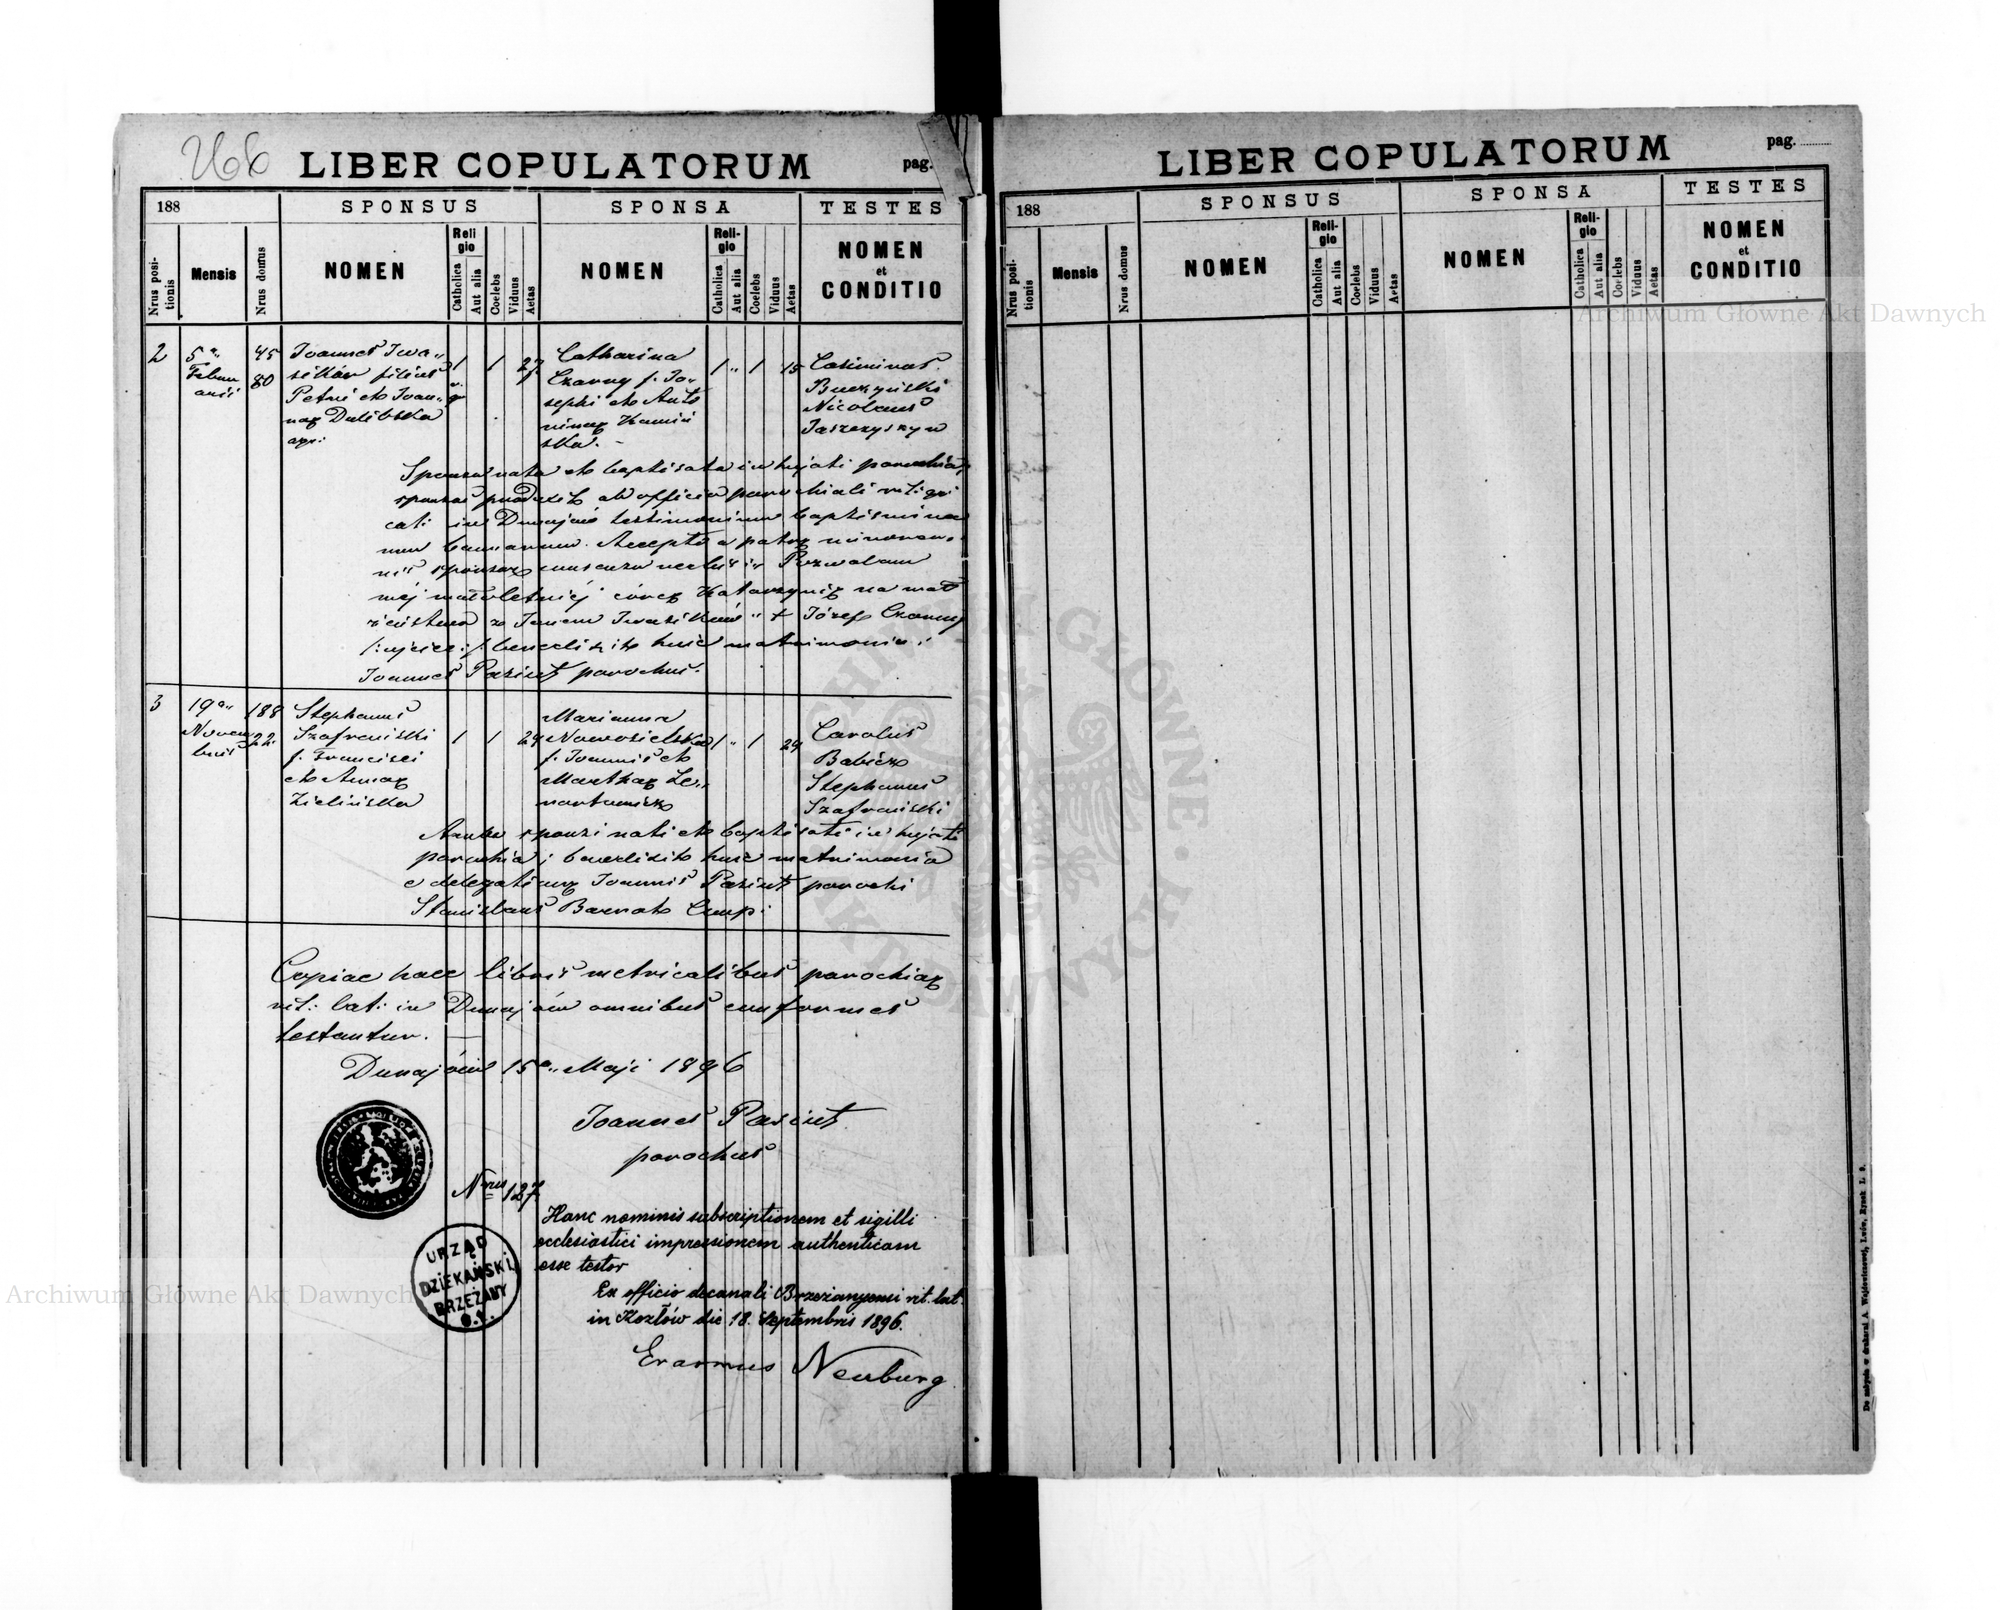 266
LIBER COPULATORUM
pag.
188
SPONSUS
SPONSA
TESTES
Nrus positionis
Mensis
Nrus domus
NOMEN
Religio
Catholica
Aut alia
Coelebs
Viduus
Aetas
NOMEN
Religio
Catholica
Aut alia
Coelebs
Viduus
Aetas
NOMEN
et
CONDITIO
2
5a
Febru
arii
45
80
Joannes Iwa„
sików filius
Petri et Joan„
nae
1
1
27
Catharina
Czarny f. Jo„
sephi et Anto
ninae Kamiń
ska.
1 „ 1 15
Casimirus
Buczyński
Nicolaus
Jaszczyszyn
Sponsa nata et baptisata in hujati parochia,
sponsus produxit ab officio parochiali rit. gr.
cat. in Dunajów testimonium baptismi
bannorum. Accepto a patre minoren„
nis sponsae consensu verbis: „Pozwalam
mej małoletniej córce Katarzynie na mał
żeństwo z Janem Iwasików" + Józef Czarny
/:ojciec:/ benedixit huic matrimonio:
Joannes Pasiut parochus.
3
19a„
Novem
bris
188
22
Stephanus
Szafrański
f. Francisci
et Annae
Zielińska
1
1
24
Marianna
Nowosielska
f. Joannis et
Marthae Le„
nartowicz
1 „ 1 24
Carolus
Babicz
Stephanus
Szafrański
Ambo sponsi nati et baptisati in hujati
parochia; benedixit huic matrimonio
e delegatione Joannis Pasiut parochi
Stanislaus Barnat Coop.
Copiae haec libris metricalibus parochiae
rit. lat. in Dunajów omnibus conformes
testantur.
Dunajów 15a„ Maji 1896
Joannes Pasiut
parochus
Nrus 127
Hanc nominis subscriptionem et sigilli
ecclesiastici impressionem authenticam
esse testor
Ex officio decanali Brzezanyensi rit. lat.
in Kozłów die 18. Septembris 1896.
Erasmus Neuburg
URZĄD
DZIEKAŃSKI
BRZEŻANY
O.Ł.
LIBER COPULATORUM
pag.
188
SPONSUS
SPONSA
TESTES
Nrus positionis
Mensis
Nrus domus
NOMEN
Religio
Catholica
Aut alia
Coelebs
Viduus
Aetas
NOMEN
Religio
Catholica
Aut alia
Coelebs
Viduus
Aetas
NOMEN
et
CONDITIO
Archiwum Główne Akt Dawnych
Archiwum Główne Akt Dawnych